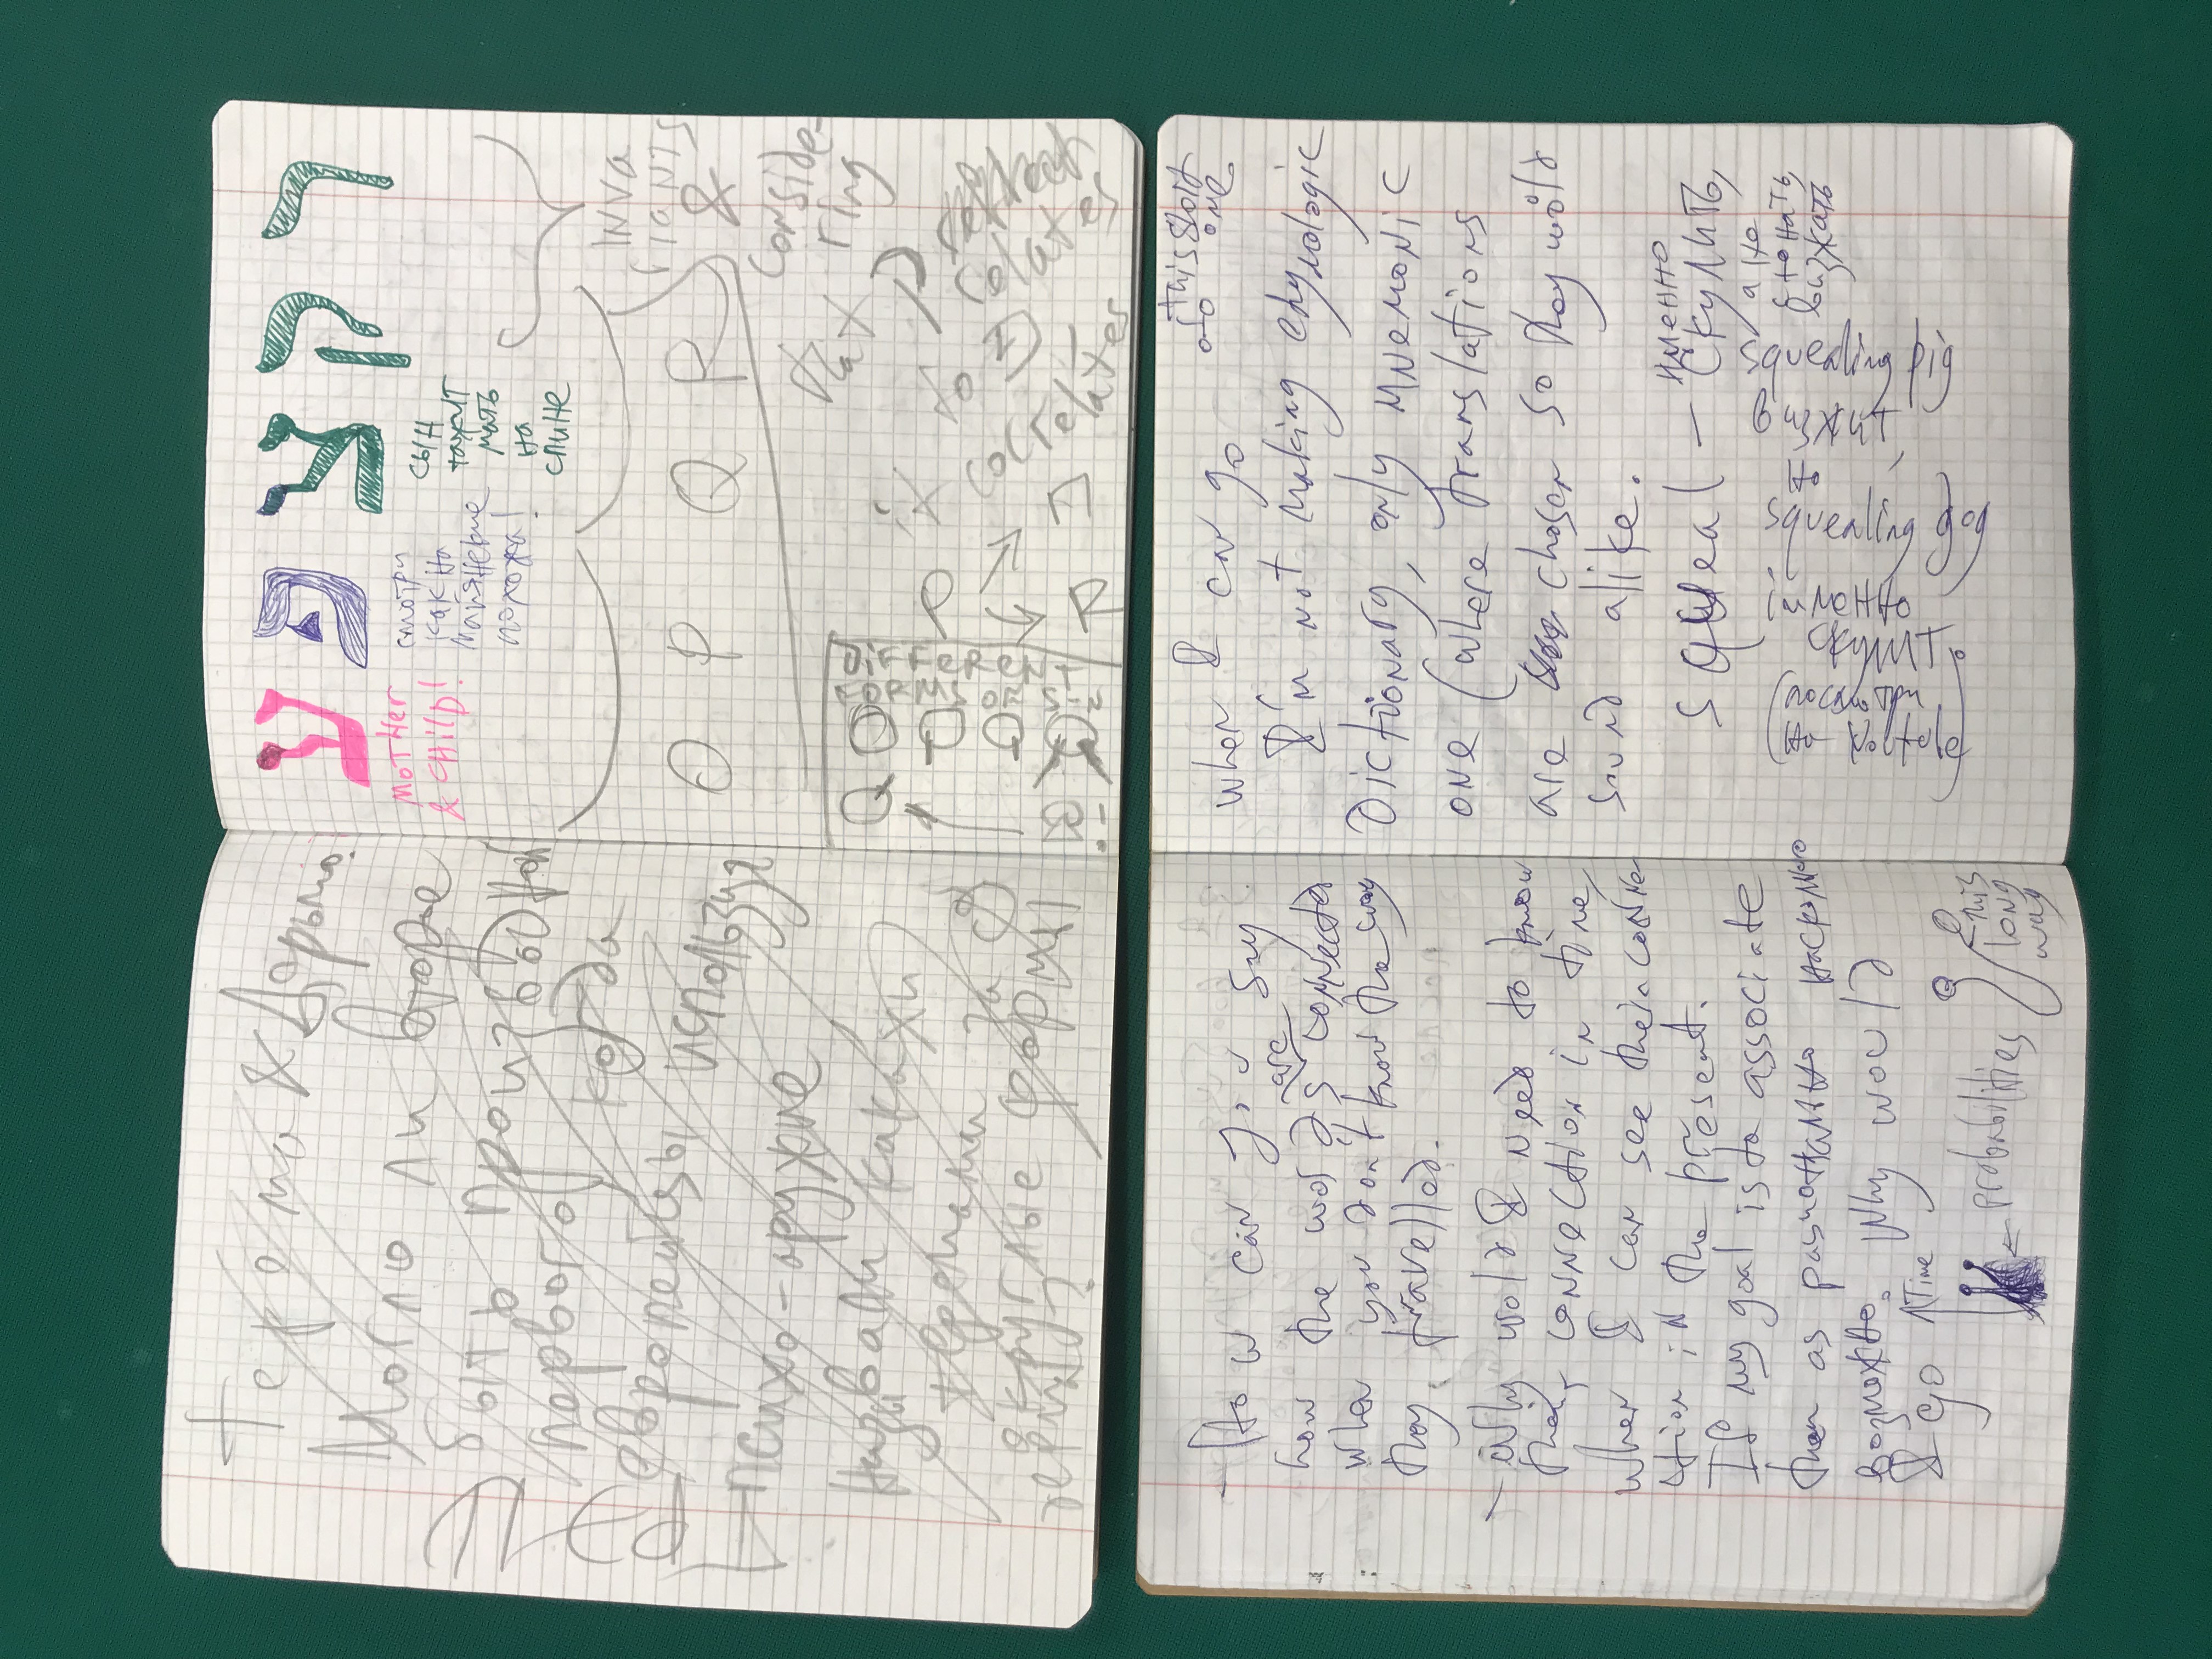 Могло ли второе
быть производной
первого когда
европейцы используя
психо-оружие
назвали какахи
за
округлые формы
?
ע פ צ ק ר
MOTHER
& CHILD!
смотри
как на
майянские
похожа!
сын
тажит
мать
на
спине
INVA
RIANTS
&
conside-
ring
O P Q P
DIFFERENT
FORMS OF
correlates
relates
- How can you say
how the words are connected
when you don't know the way
they travelled.
- Why wold I need to know
their connection in time,
when I can see their conne-
ction in the present.
If my goal is to associate
them as
возможно. Why would
I go
Time
probabilities
this
long
way
when I can go
this short
one
I'm not making etymologic
Dictionary, only mnemonic
one (where translations
are chosen so they wold
sound alike.
squeal – именно
скулить,
а не
стонать,
визжать
squealing pig
визжит,
но
squealing dog
именно
скулит.
(посмотри